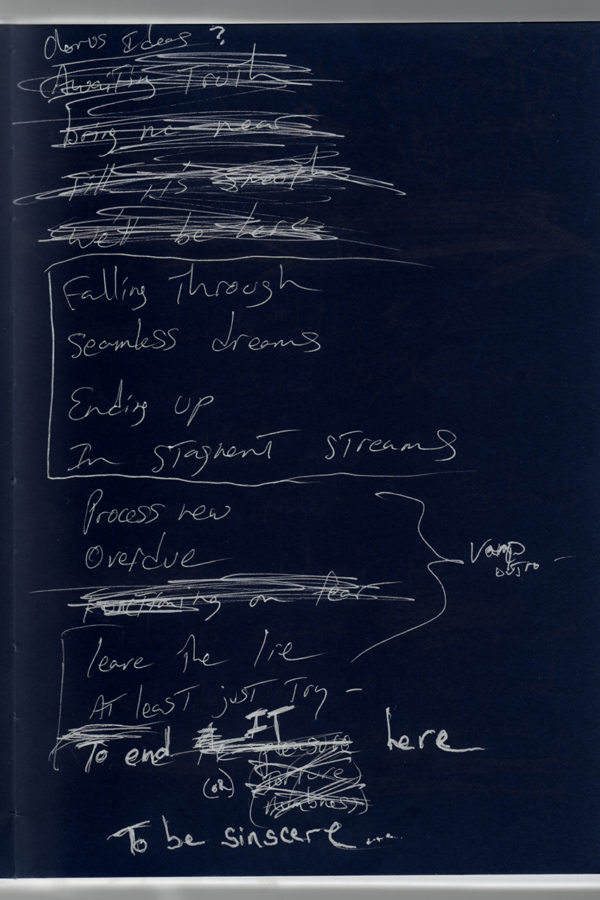 chorus Ideas ?
Awaiting Truth
bring me near
Till it's
we'll be here
Falling Through
seamless dreams
Ending up
In stagnent streams
Process new
Overdue
Vamp
outro -
Functioning on fear
leave the lie
At least just Try -
To end IT here
(or)
pleasure
torture
numbness
To be sinscere ...